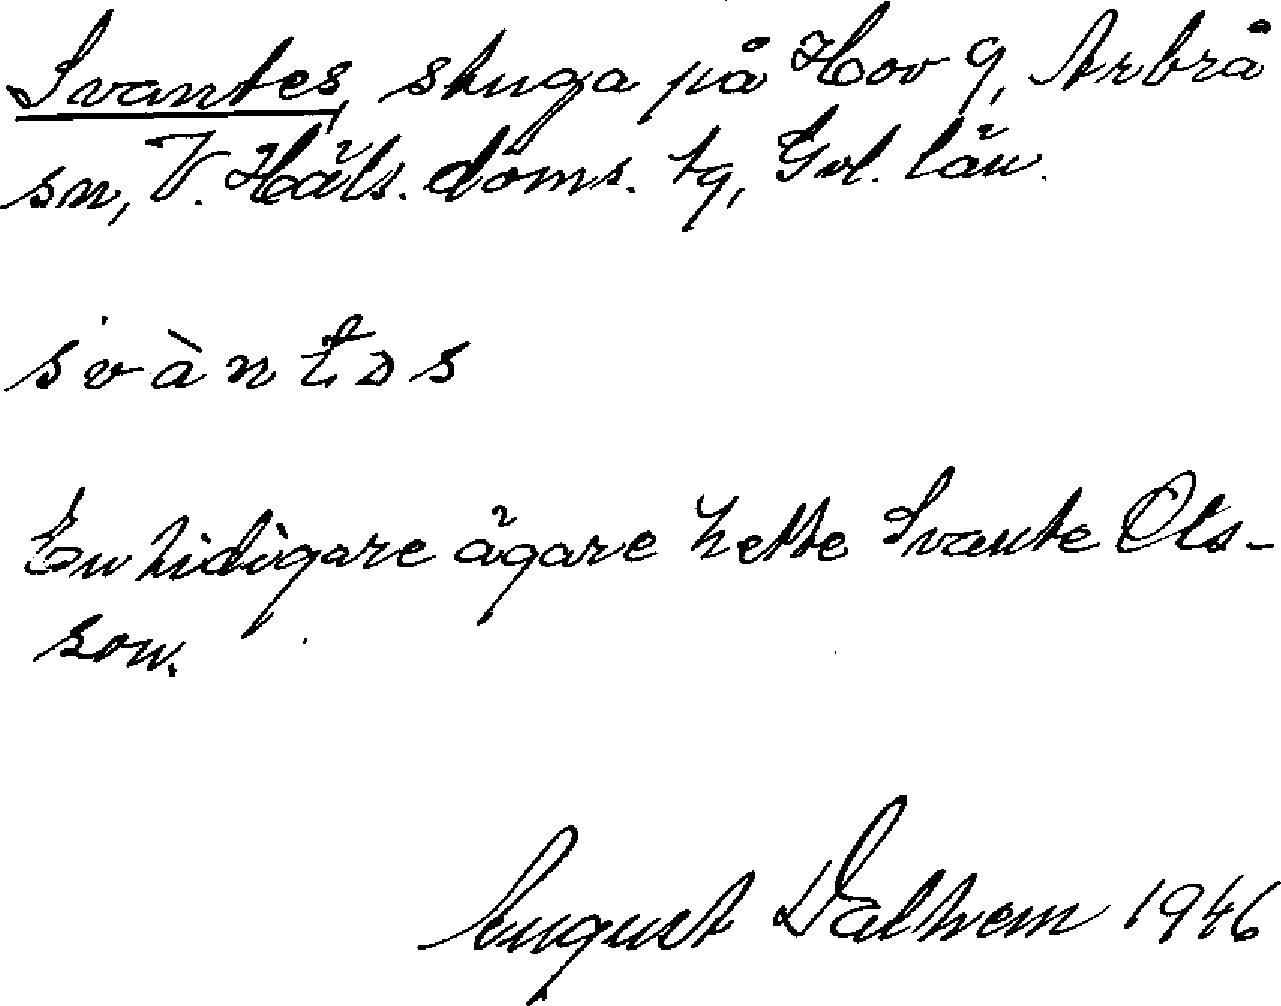 Svantes, stuga på Hov 9, Arbrå
sn, V. Häls. doms. tg, Gvl. län.
svàntəs
En tidigare ägare hette Svante Ols-
son.
August Dalhem 1946